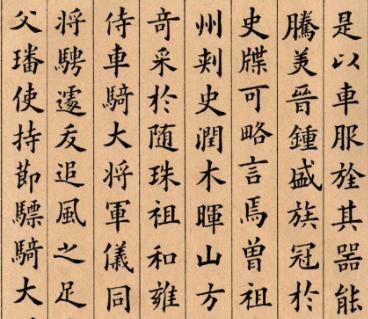 是以車服旌其器能
騰美晉鍾盛族冠於
史牒可略言焉曾祖
州刾史潤木暉山方
奇采於随珠祖和雍
侍車騎大将軍儀同
将騁遽反追風之足
父璠使持莭驃騎大